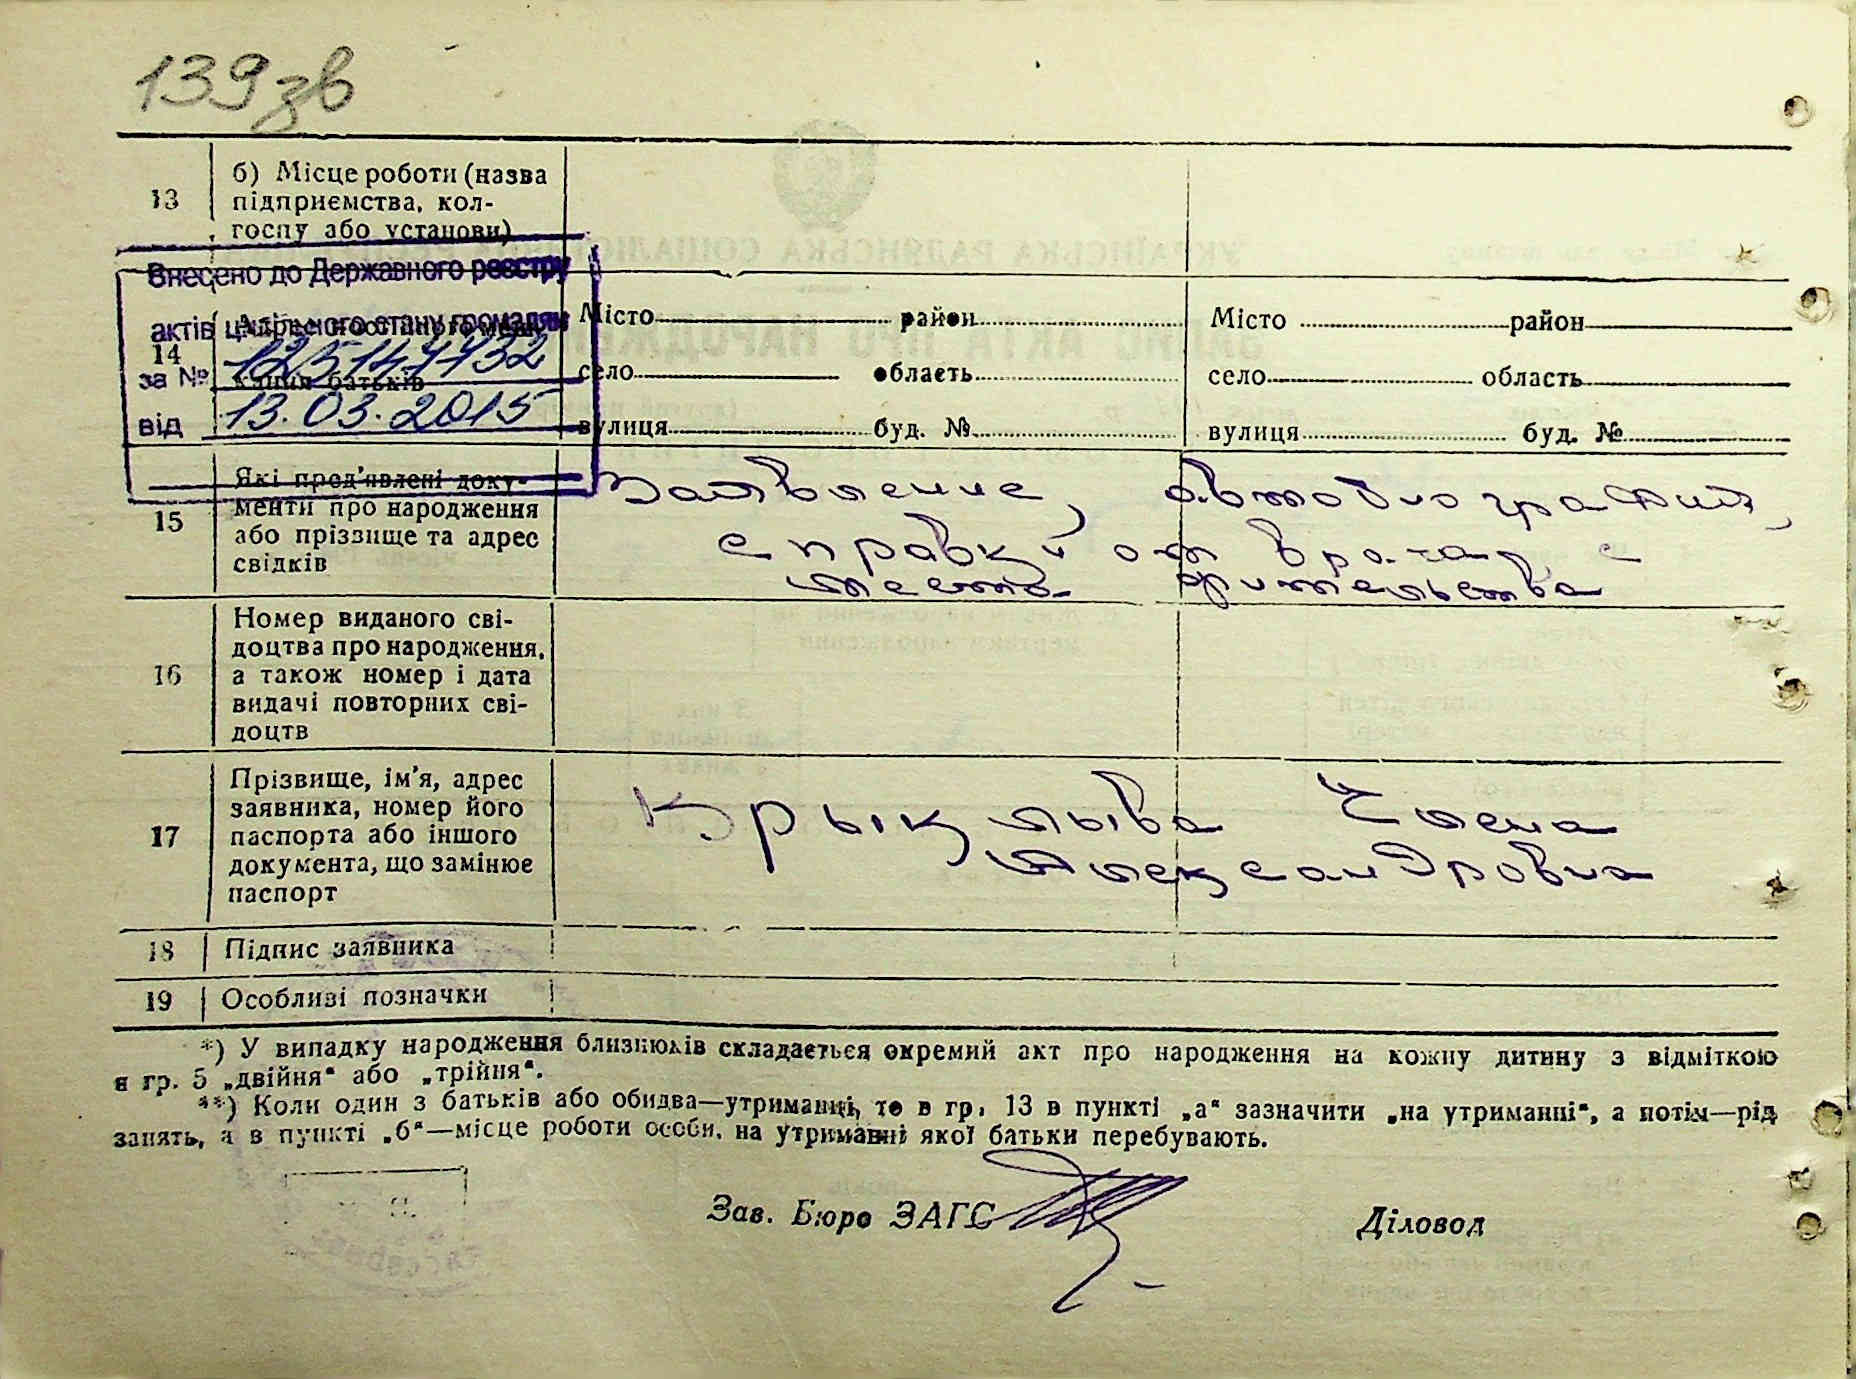 139зв
13
б) Місце роботи (назва
підприємства, кол-
госпу або установи)
Внесено до Державного реєстру
актів цивільного стану громадян
за №
від 13.03.2015
14
Адрес постійного меш-
кання батьків
Місто район
село область
вулиця буд. №
Місто район
село область
вулиця буд. №
15
Які пред'явлені доку-
менти про народження
або прізвище та адрес
свідків
Заявление, автобиография,
справки от врача, с
места жительства
16
Номер виданого сві-
доцтва про народження,
а також номер і дата
видачі повторних сві-
доцтв
17
Прізвище, ім'я, адрес
заявника, номер його
паспорта або іншого
документа, що замінює
паспорт
Крыклыва Елена
Александровна
18 Підпис заявника
19 Особливі позначки
*) У випадку народження близнюків складається окремий акт про народження на кожну дитину з відміткою
в гр. 5 „двійня“ або „трійня“.
**) Коли один з батьків або обидва—утриманці, то в гр. 13 в пункті „а“ зазначити „на утриманні“, а потім—рід
занять, а в пункті „б“—місце роботи особи, на утриманні якої батьки перебувають.
Зав. Бюро ЗАГС
Діловод